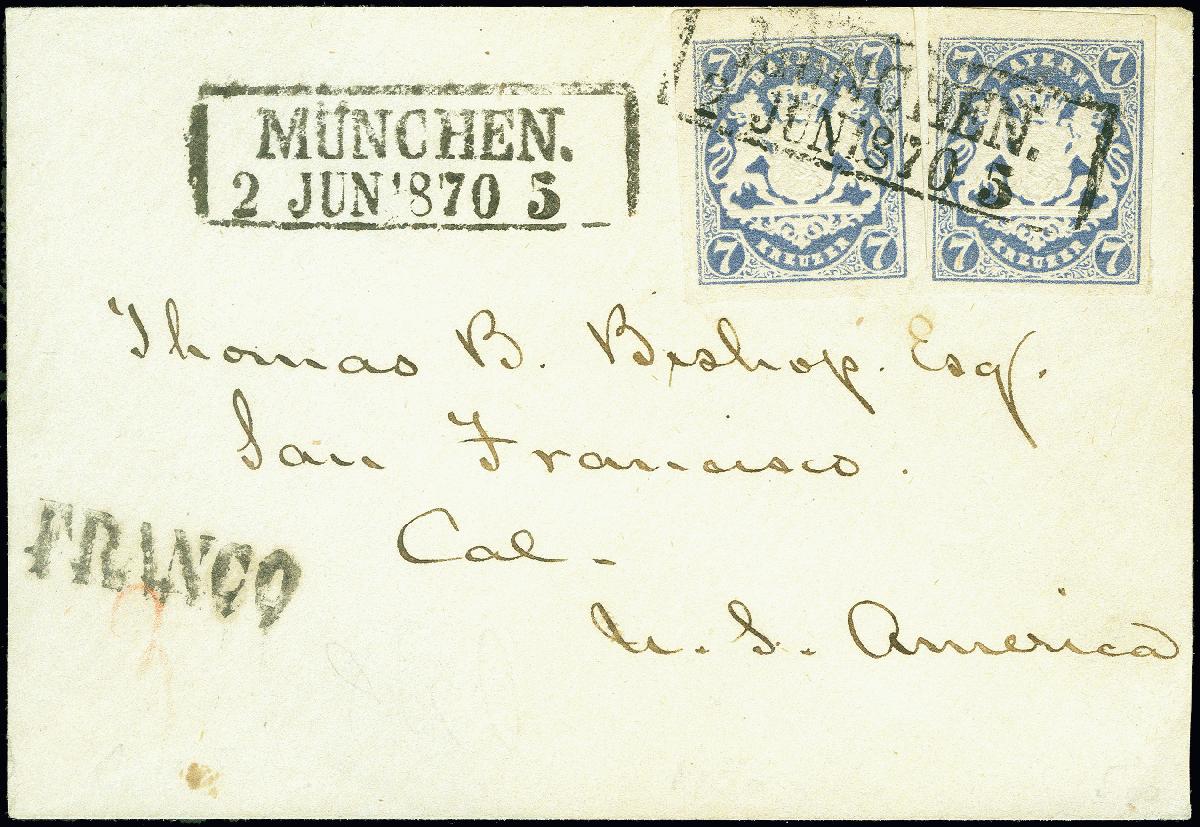 MÜNCHEN.
2 JUN 1870 5
7 BAYERN 7
7 KREUZER 7
7 BAYERN 7
7 KREUZER 7
MÜNCHEN.
2 JUN 1870 5
Thomas B. Bishop. Esq.
San Francisco.
Cal-
U. S. America
FRANCO